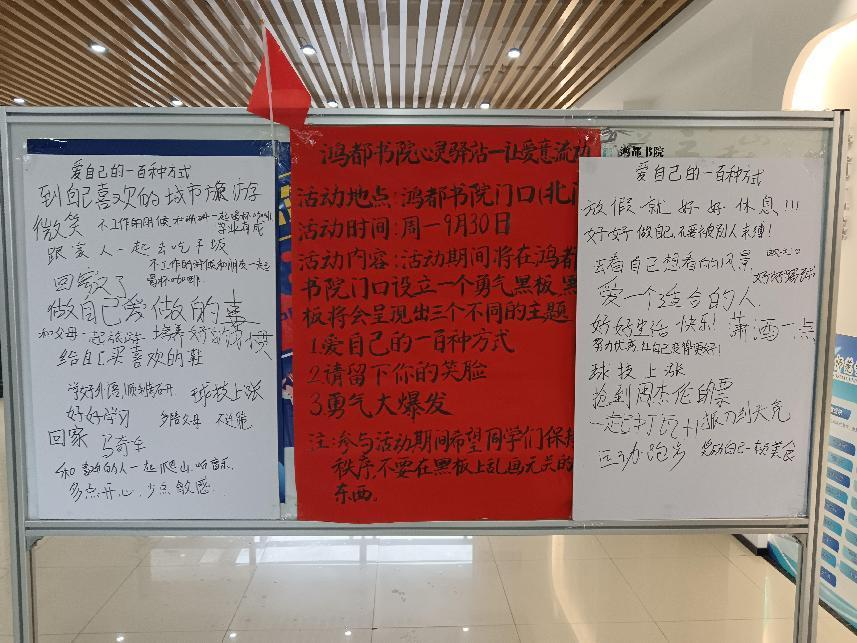 爱自己的一百种方式
到自己喜欢的城市旅游
微笑
学业有成
跟家人一起去吃
不工作的时候和朋友一起
喝杯咖啡
做自己爱做的事
和父母一起旅游 培养好习惯
给自己买喜欢的鞋
学好外语,顺利
球技上涨
好好学习
多陪父母
回家
和喜欢的人一起爬山,听音乐
多点开心,少点敏感
鸿都书院心灵驿站一让爱意流动
活动地点:鸿都书院门口(北门
活动时间:周一-9月30日
活动内容:活动期间将在鸿都
书院门口设立一个勇气黑板,黑
板将会呈现出三个不同的主题
1.爱自己的一百种方式
2.请留下你的笑脸
3.勇气大爆发
注:参与活动期间希望同学们保持
秩序,不要在黑板上乱画无关的
东西.
鸿都书院
爱自己的一百种方式
放假就好好休息!!!
好好做自己,不要被别人束缚!
去看自己想看的风景
爱一个适合的人
好好生活 快乐! 潇洒一点
努力优秀,让自己变得更好!
球技上涨
抢到周杰伦的票
运动跑步
奖励自己一顿美食